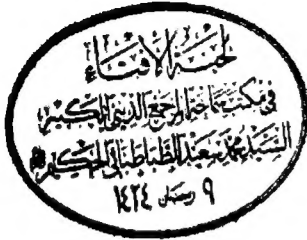 لجنة الإفتاء
في مكتب سماحة المرجع الديني الكبير
السيد محمد سعيد الطباطبائي الحكيم
٩ رمضان ١٤٢٤